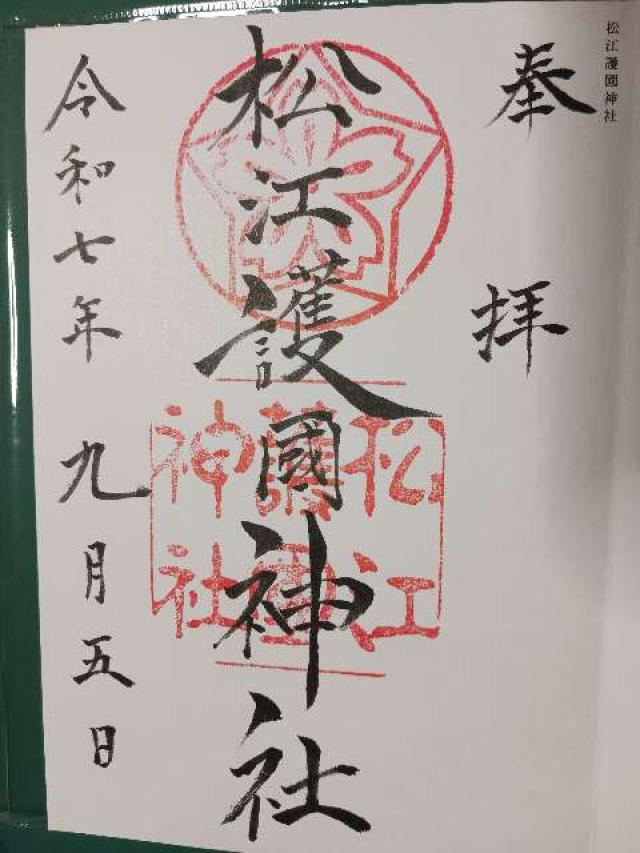 松江護國神社
奉拝
松江護國神社
令和七年九月五日
松江
護國
神社